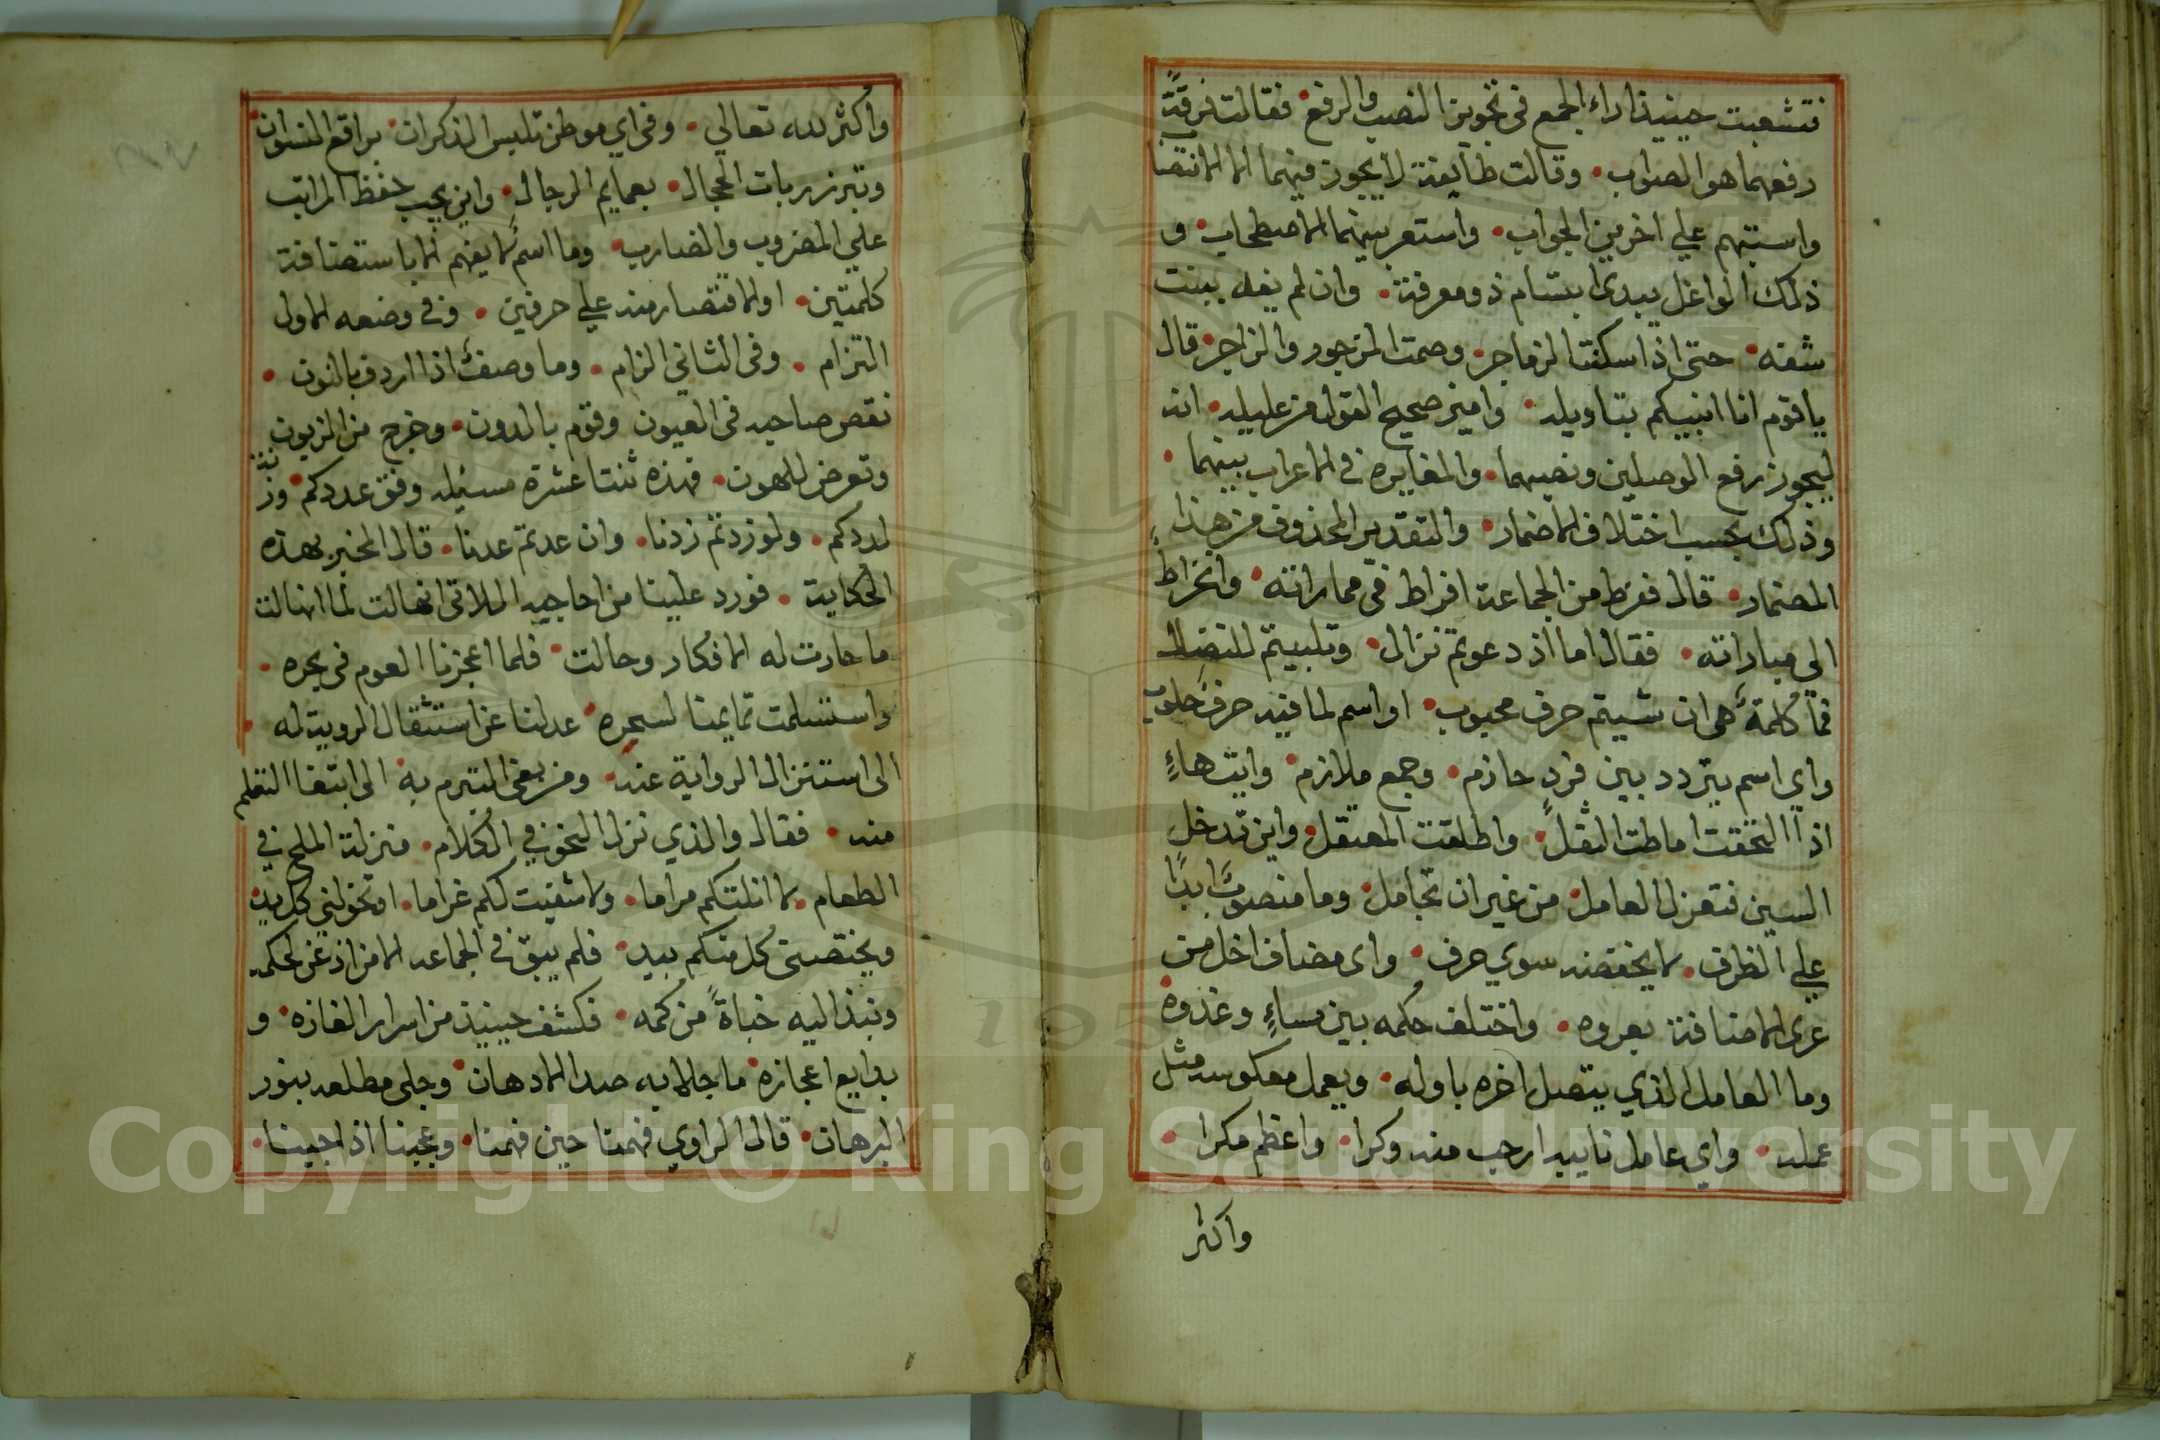 فتشعبت حينيذ اراء الجمع في تجويز النصب والرفع • فقالت فرقة
رفعهما هو الصواب • وقالت طايفة لا يجوز فيهما الا الانتصاب
واستبهم علي اخرين الجواب • واستعر بينهما الاصطخاب • و
ذلك الواغل يبدي ابتسام ذو معرفة • وان لم يفه ببنت
شفه • حتى اذا سكنت الزماجر • وصمت المزجور والزاجر • قال
يا قوم انا انبيكم بتاويله • واميز صحيح القول من عليله • انه
ليجوز رفع الوصلين ونصبهما • والمغايره في الاعراب بينهما •
وذلك بحسب اختلاف الاضمار • والتقدير المحذوف من هذا
المضمار • قال ففرط من الجماعة افراط في مماراته • وانخراط
الى مباراته • فقال اما اذ دعوتم نزال • وتلبيتم للنضال
فما كلمة هي ان شيتم حرف محبوب • او اسم لما فيه حرف حلوب
واي اسم يتردد بين فرد حازم • وجمع ملازم • واية هاء
اذا التحقت اماطت الثقل • واطلقت المعتقل • واين تدخل
السين فتعزل العامل • من غير ان تجامل • وما منصوب ابدا
علي الظرف • لا يخفضه سوي حرف • واي مضاف اخل من
عرى الاضافة بعروه • واختلف حكمه بين مساء وغدوه
وما العامل الذي يتصل اخره باوله • ويعمل معكوسه مثل
عمله • واي عامل نايبه ارحب منه وكرا • واعظم مكرا •
واكثر
واكثر لله تعالي • وفي اي موطن تلبس الذكران • براقع النسوان
وتبرز ربات الحجال • بعمايم الرجال • واين يجب حفظ المراتب
علي المضروب والضارب • وما اسم لا يفهم الا باستضافة
كلمتين • او الاقتصار منه علي حرفين • وفي وضعه الاول
التزام • وفي الثاني الزام • وما وصف اذا اردف بالنون •
نقص صاحبه في العيون وقوم بالدون • وخرج من الزبون
وتعرض للهون • فهذه ثنتا عشرة مسئله وفق عددكم • وزنة
لددكم • ولو زدتم زدنا • وان عدتم عدنا • قال المخبر بهذه
الحكاية • فورد علينا من احاجيه اللاتي انهالت لما انهالت
ما حارت له الافكار وحالت • فلما اعجزنا العوم في بحره •
واستسلمت تمايمنا لسحره • عدلنا عن استثقال الروية له •
الى استنزال الرواية عنه • ومن بغي التبرم به • الى ابتغا التعلم
منه • فقال والذي نزل النحو في الكلام • منزلة الملح في
الطعام • لا انلتكم مراما • ولا شفيت لكم غراما • او تخولني كل يد
ويختصني كل منكم بيد • فلم يبق في الجماعه الا من اذعن لحكمه
ونبذ اليه خباة من كمه • فكشف حينيذ من اسرار الغازه • و
بدايع اعجازه • ما جلا به صدا الاذهان • وجلي مطلعه بنور
البرهان • قال الراوي فهمنا حين فهمنا • وعجبنا اذ اجبنا •
Copyright © King Saud University